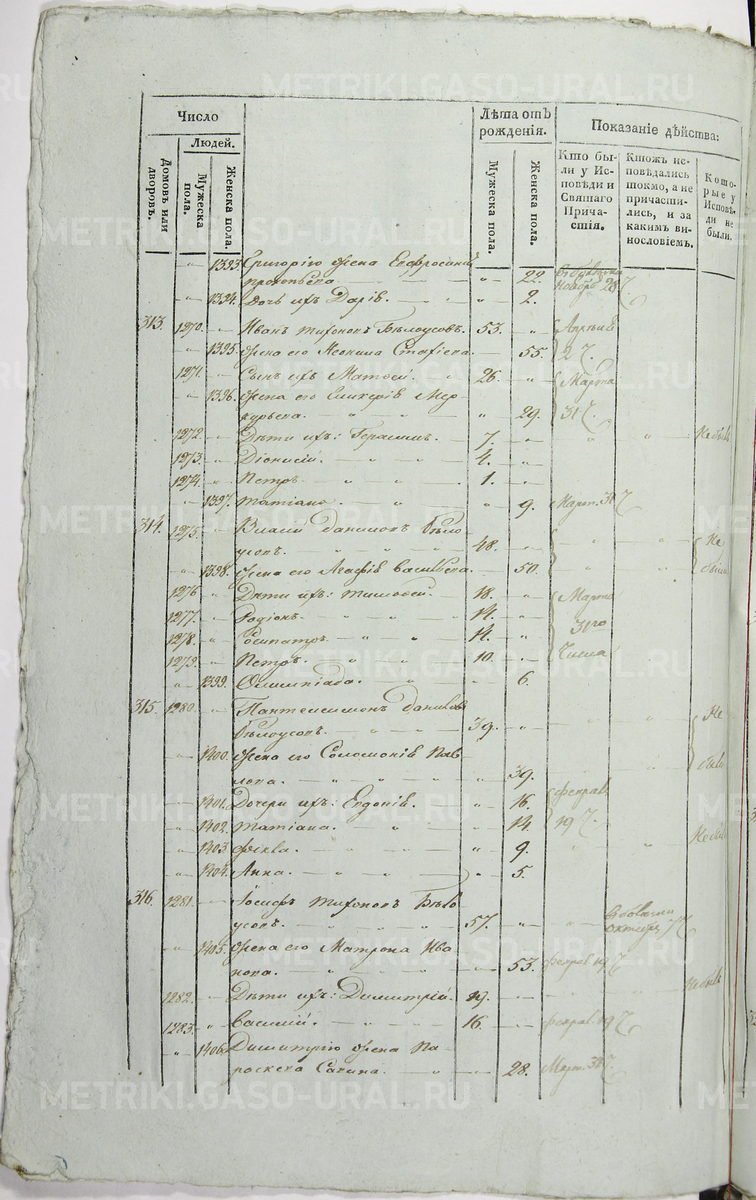 METRIKI.GASO-URAL.RU
Число
Людей.
Домовъ или дворовъ.
Мужеска пола.
Женска пола.
Лѣта отъ рожденія.
Мужеска пола.
Женска пола.
Показаніе дѣйства:
Кто были у Исповѣди и Святаго Причастія.
Ктожъ исповѣдались токмо, а не причастились, и за какимъ винословіемъ.
Которые у Исповѣди не были.
1393. Григорію жена Евфросинія
Прокопьева 22.
1394. Дочь ихъ Дарія. 2.
313. 1270. Иванъ Тихоновъ Бѣлоусовъ. 53. Апрѣля
1395. жена его Неонила 55. 2
1271. Сынъ ихъ Матѳей. 26. Марта
1396. жена его Гликерія Мер-
курьева. 29. 31
1272. Дѣти ихъ: Герасимъ. 7. Не былъ
1273. Діонисій. 4.
1274. Петръ. 1.
1397. Татіана. 9. Март. 31
314. 1275. Власій Даниловъ Бѣло-
усовъ. 48. Не
1398. жена его Агафія Васильева. 50. были
1276 Дѣти ихъ: Тимоѳей. 18. Марта
1277. Родіонъ. 14. 31го
1278. 14.
1279. Петръ. 10. Числа
1399. Олимпіада. 6.
315. 1280. Пантелеимонъ Даниловъ
Бѣлоусовъ. 39. Не
1400. жена его Соломонія Пав-
лова. 39. были
1401. Дочери ихъ: Евдокія. 16. Феврал.
1402. Татіана. 14. 19
1403. Ѳекла. 9. Не были
1404. Анна. 5.
316. 1281. Іосифъ Тихоновъ Бѣло-
усовъ. 57. октябр. 7
1405. жена его Матрона Ива-
нова. 53. Феврал. 19
1282. Дѣти ихъ: Димитрій. 19. Не былъ
1283. Василій. 16. Феврал. 19
1406. Димитрію жена Па-
раскева Савина. 28. Март. 31